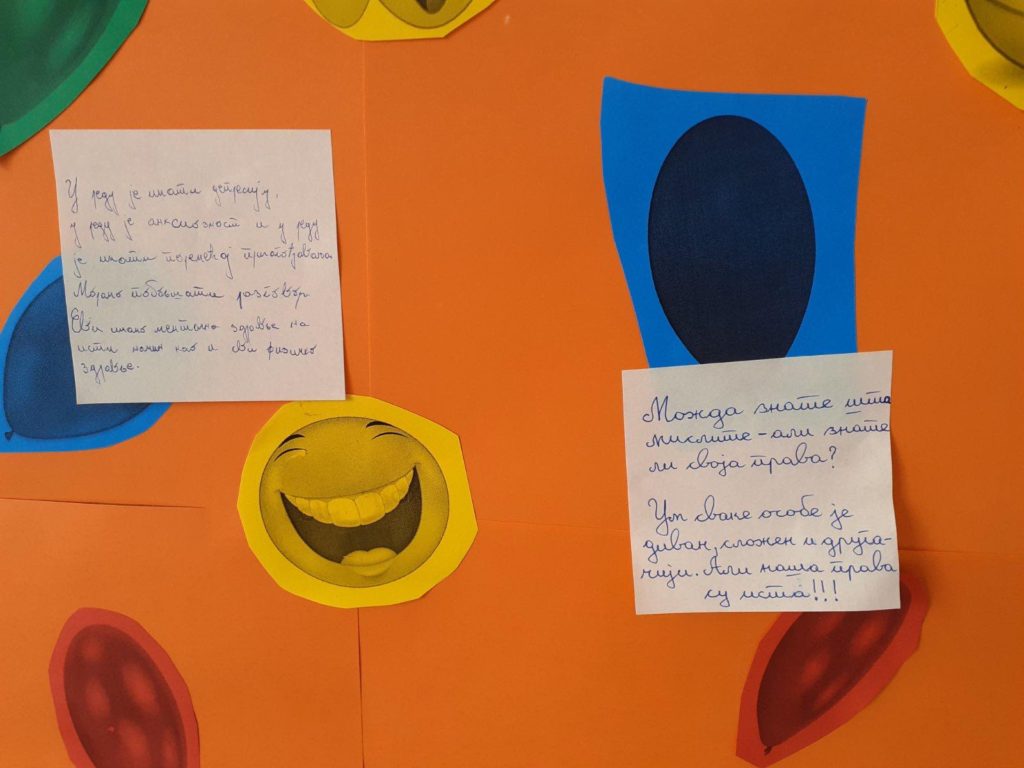 У реду је имати депресију,
у реду је анксиозност и у реду
је имати поремећај прилагођавања
Морамо побољшати разговор.
Сви имамо ментално здравље на
исти начин као и сви физичко
здравље.
Можда знате шта
мислите - али знате
ли своја права?
Ум сваке особе је
диван, сложен и друга-
чији. Али наша права
су иста!!!